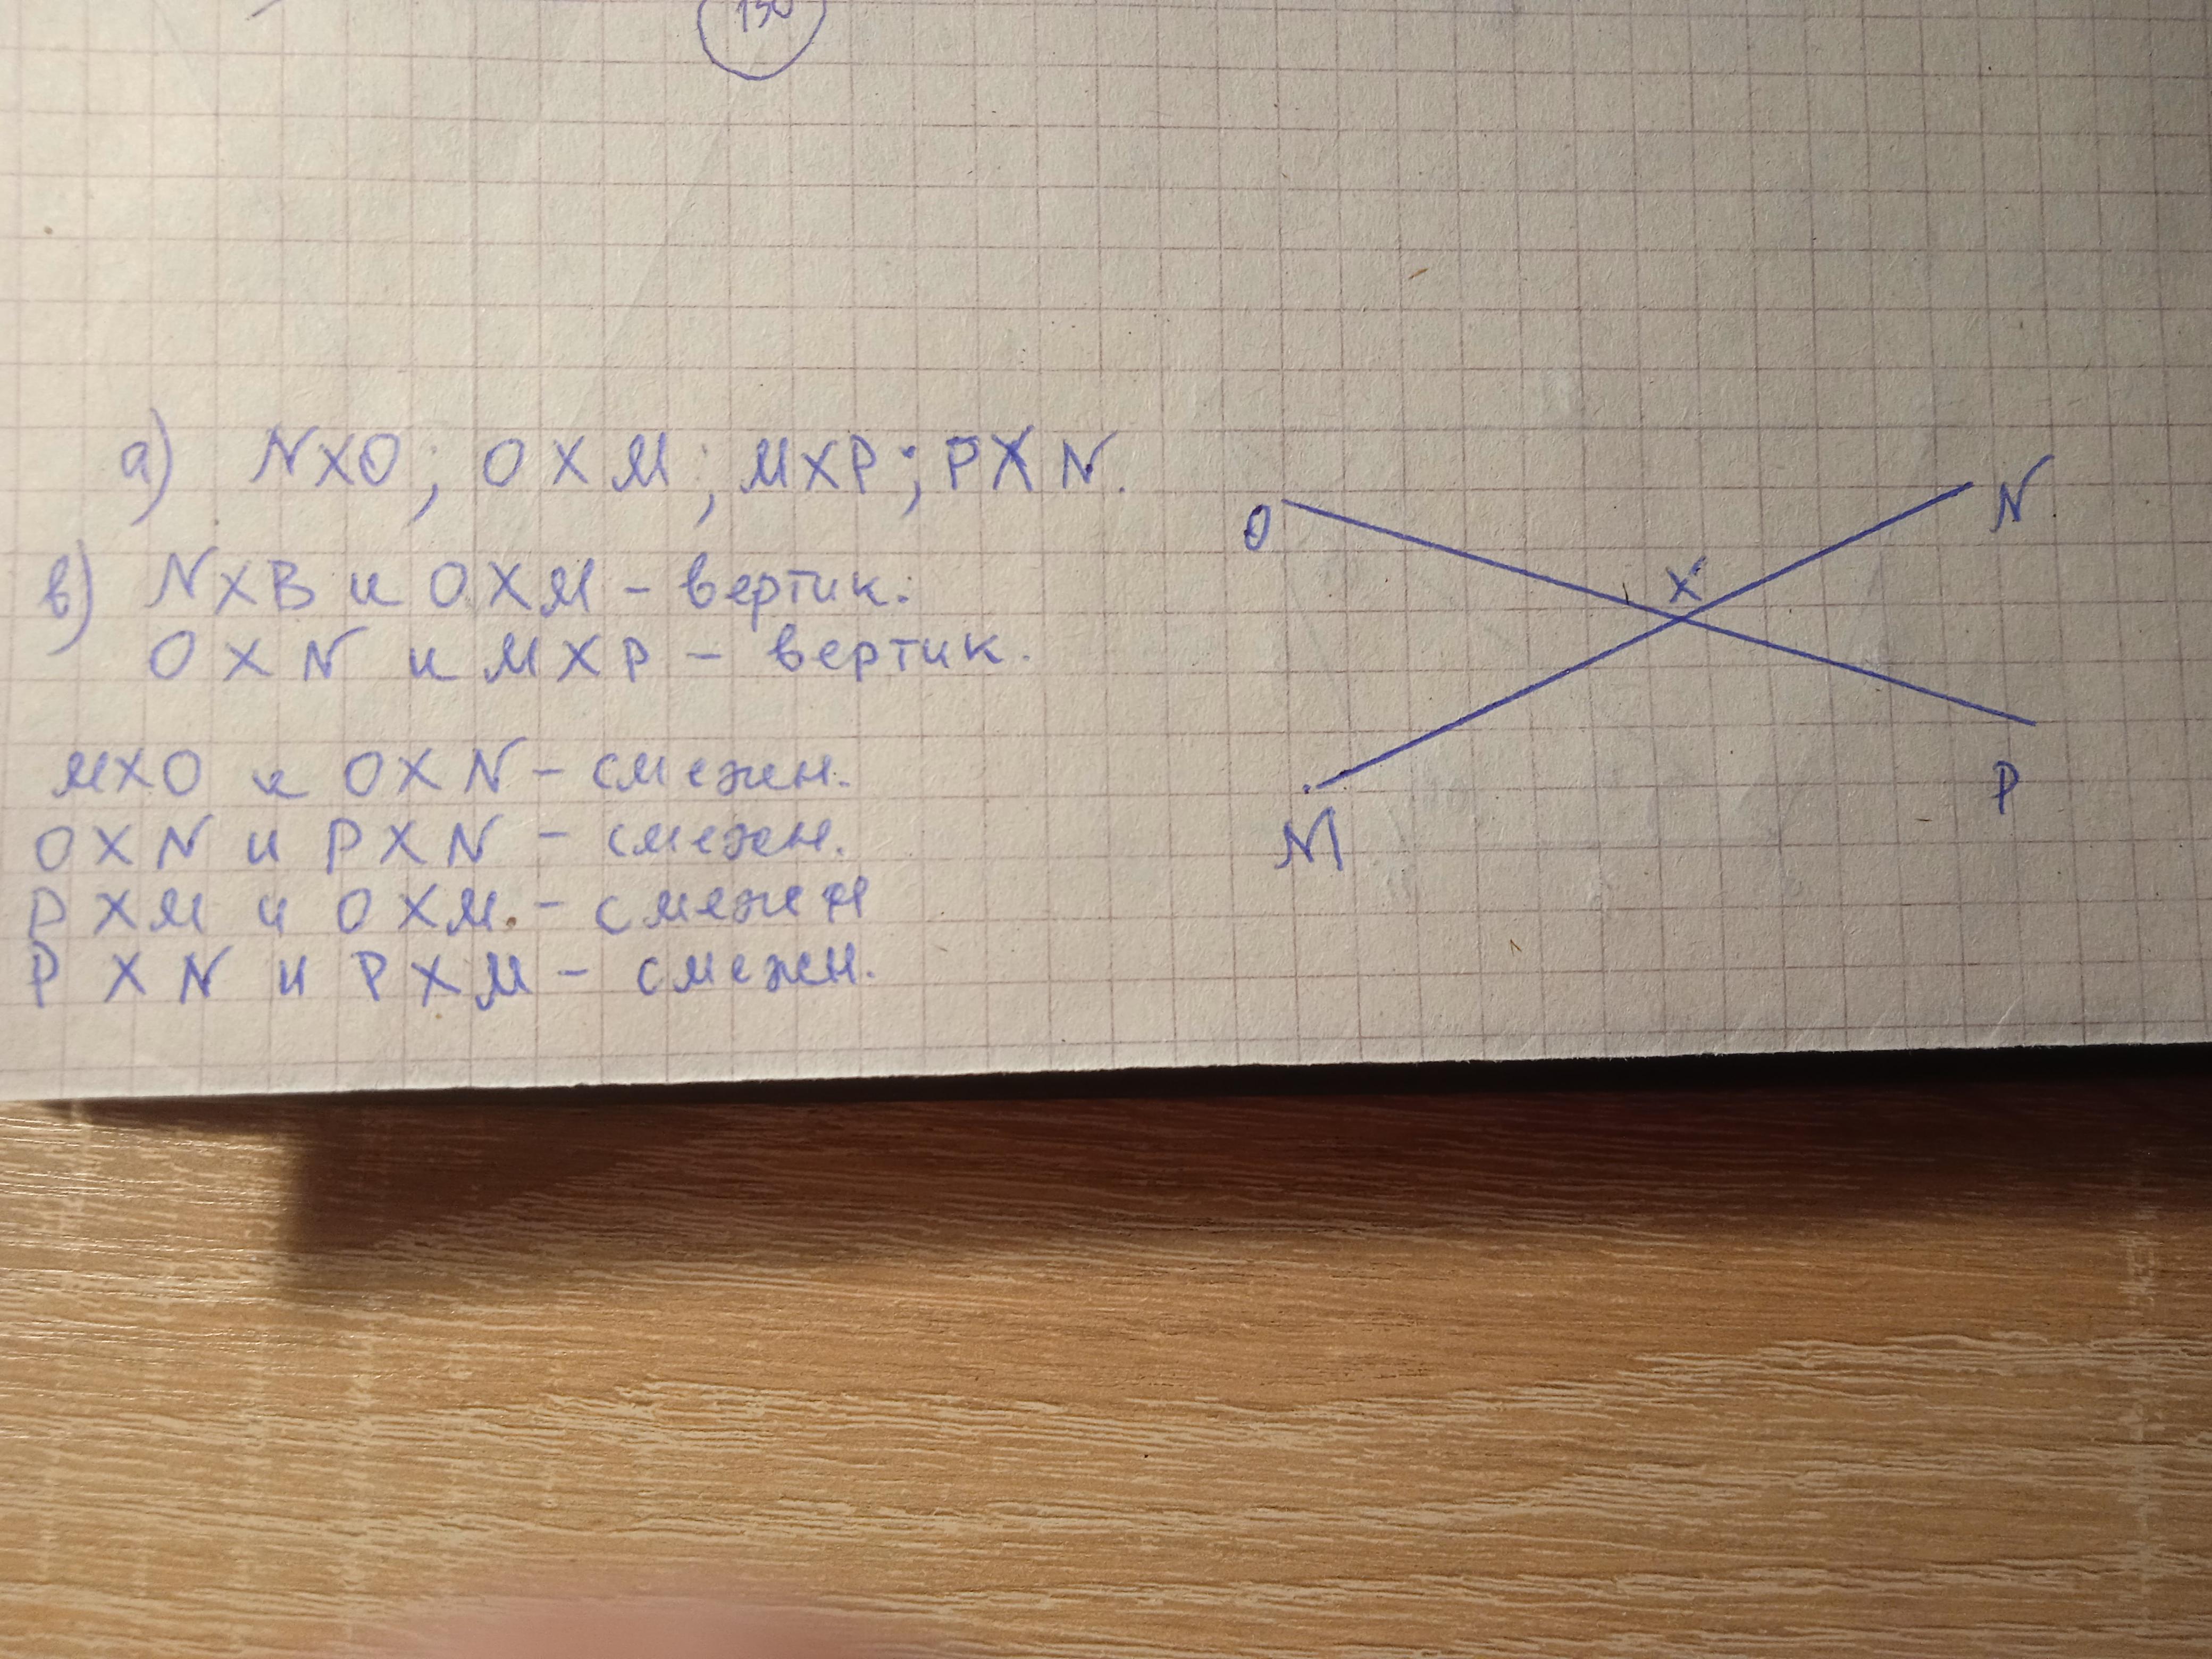 а) NXO; OXM; MXP; PXN.
в) NXB и OXM - вертик.
OXN и MXP - вертик.
MXO и OXN - смежн.
OXN и PXN - смежн.
PXM и OXM. - смежн
PXN и PXM - смежн.
O
N
X
P
M